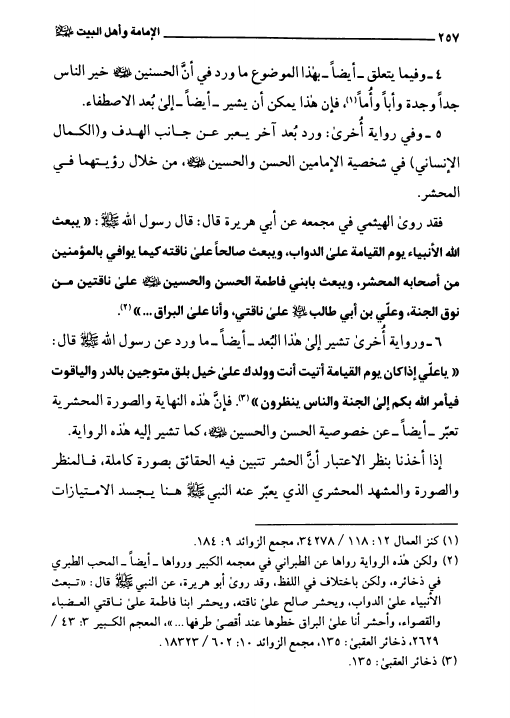 ٢٥٧ الإمامة وأهل البيت ﷺ
٤ ـ وفيما يتعلق ـ أيضاً ـ بهٰذا الموضوع ما ورد في أنَّ الحسنين خير الناس
جداً وجدة وأباً وأُماً(١)، فإن هٰذا يمكن أن يشير ـ أيضاً ـ إلىٰ بُعد الاصطفاء.
٥ ـ وفي رواية أُخرىٰ: ورد بُعد آخر يعبر عـن جـانب الهـدف و(الكـمال
الإنساني) في شخصية الإمامين الحسن والحسين، من خلال رؤيـتهما فـي
المحشر.
فقد روىٰ الهيثمي في مجمعه عن أبي هريرة قال: قال رسول الله ﷺ: « يبعث
الله الأنبياء يوم القيامة علىٰ الدواب، ويبعث صالحاً علىٰ ناقته كيما يوافي بالمؤمنين
من أصحابه المحشر، ويبعث بابني فاطمة الحسن والحسين علىٰ ناقتين مـن
نوق الجنة، وعلّي بن أبي طالب علىٰ ناقتي، وأنا علىٰ البراق...»(٢).
٦ ـ ورواية أُخرىٰ تشير إلىٰ هٰذا البُعد ـ أيضاً ـ ما ورد عن رسول الله ﷺ قال:
« ياعلّي إذا كان يوم القيامة أتيت أنت وولدك علىٰ خيل بلق متوجين بالدر والياقوت
فيأمر الله بكم إلىٰ الجنة والناس ينظرون »(٣). فإنَّ هٰذه النهاية والصورة المحشرية
تعبّر ـ أيضاً ـ عن خصوصية الحسن والحسين، كما تشير إليه هٰذه الرواية.
إذا أخذنا بنظر الاعتبار أنَّ الحشر تتبين فيه الحقائق بصورة كاملة، فـالمنظر
والصورة والمشهد المحشري الذي يعبّر عنه النبي ﷺ هـنا يـجسد الامـتيازات
(١) كنز العمال ١٢: ١١٨ / ٣٤٢٧٨، مجمع الزوائد ٩: ١٨٤.
(٢) ولكن هٰذه الرواية رواها عن الطبراني في معجمه الكبير ورواها ـ أيضاً ـ المحب الطبري
في ذخائره، ولكن باختلاف في اللفظ، وقد روىٰ أبو هريرة، عن النبي ﷺ قال: «تـبعث
الأنبياء علىٰ الدواب، ويحشر صالح علىٰ ناقته، ويحشر ابنا فاطمة علىٰ نـاقتي العـضباء
والقصواء، وأحشر أنا علىٰ البراق خطوها عند أقصىٰ طرفها...»، المعجم الكـبير ٣: ٤٣ /
٢٦٢٩، ذخائر العقبىٰ: ١٣٥، مجمع الزوائد ١٠: ٦٠٢ / ١٨٣٢٣.
(٣) ذخائر العقبىٰ: ١٣٥.